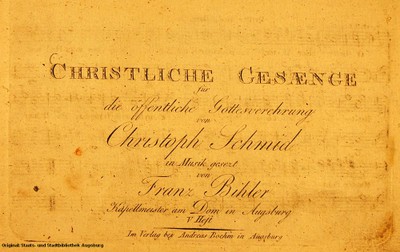 CHRISTLICHE GESÆNGE
für
die öffentliche Gottesverehrung
von
Christoph Schmid
in Musik gesezt
von
Franz Bihler
Kapellmeister am Dom in Augsburg
V Heft
Im Verlag bey Andreas Boehm in Augsburg
Original Staats- und Stadtbibliothek Augsburg